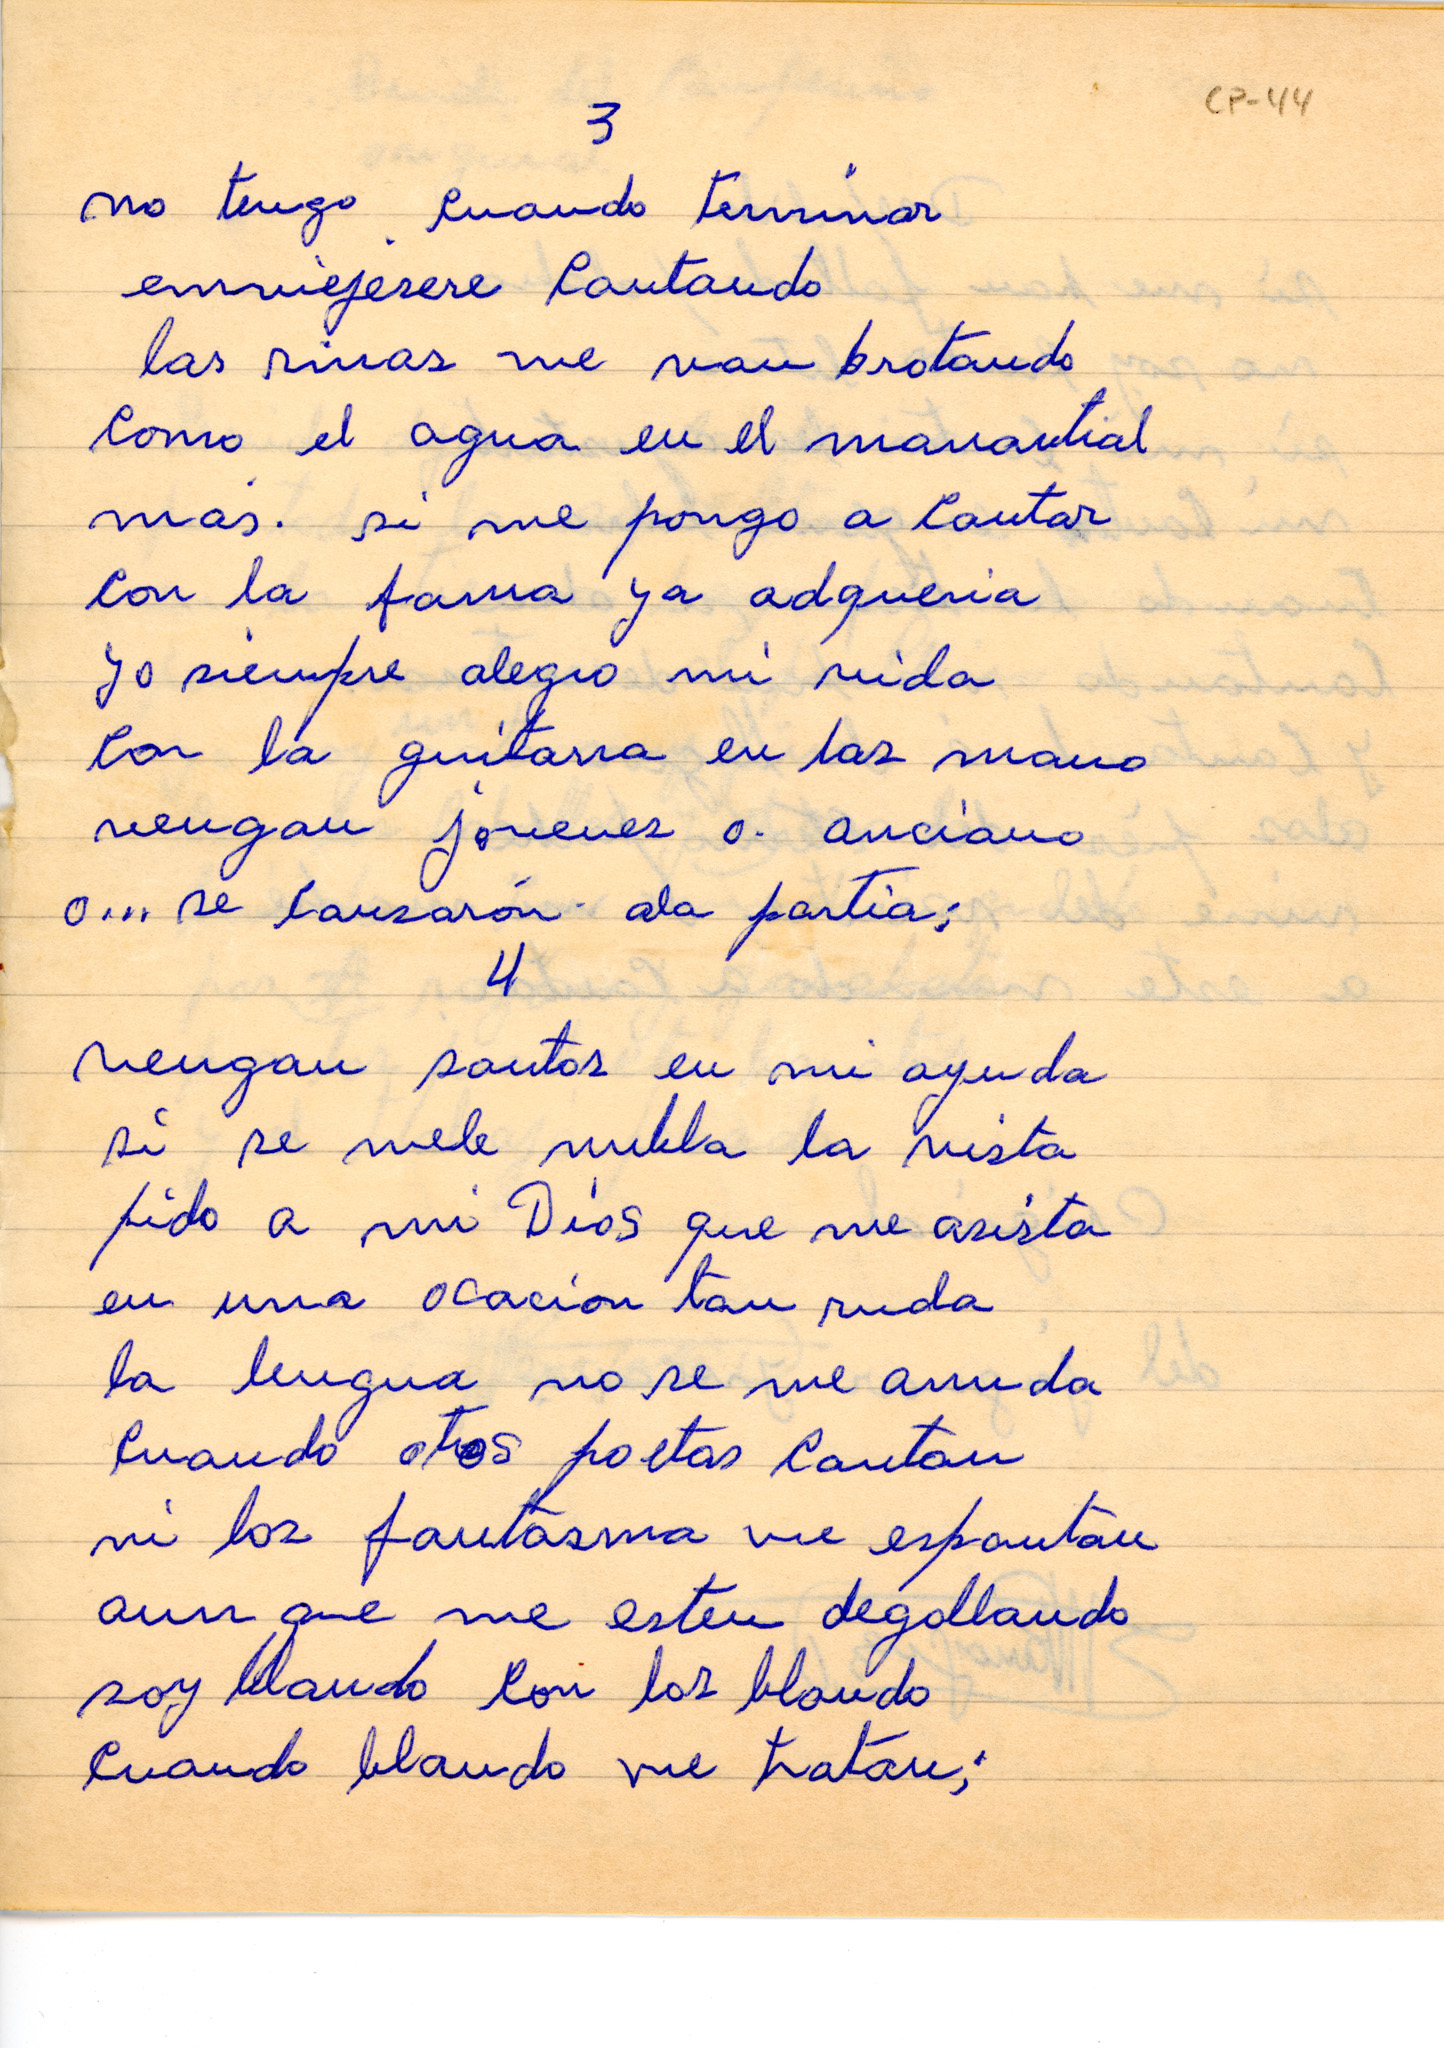 CP-44
3
no tengo cuando terminar
emviejesere cantando
las rimas me van brotando
como el agua en el manantial
más. si me pongo a cantar
con la fama ya adqueria
yo siempre alegro mi vida
con la guitarra en las mano
vengan jovenes o. anciano
o... se cansarón ala partia;
4
vengan santos en mi ayuda
si se mele nubla la vista
pido a mi Dios que me asista
en una ocacion tan ruda
la lengua no se me anuda
cuando otros poetas cantan
ni los fantasma me espantan
aun que me esten degollando
soy blando con los blando
cuando blando me tratan;